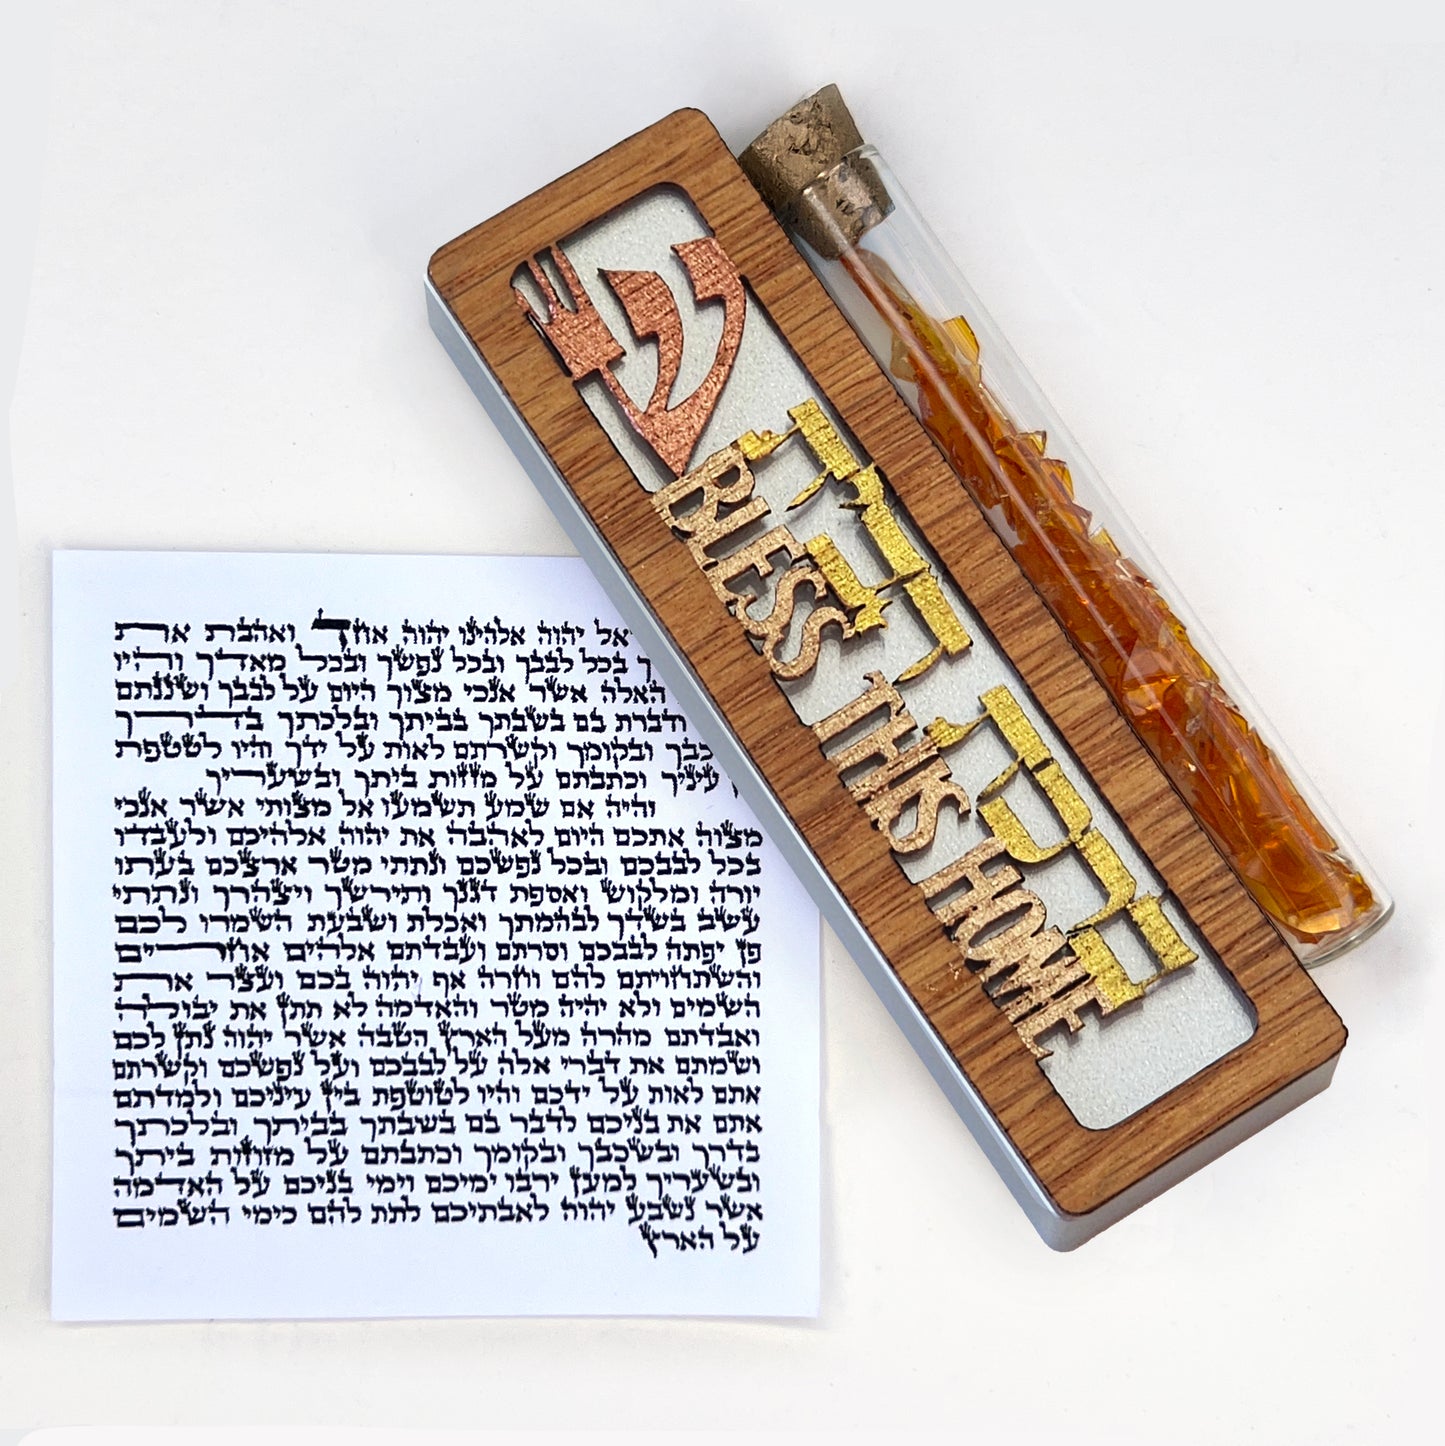 ש
ברכת הבית
BLESS THIS HOME
אל יהוה אלהינו יהוה אחד ואהבת את
ך בכל לבבך ובכל נפשך ובכל מאדך והיו
האלה אשר אנכי מצוך היום על לבבך ושננתם
ודברת בם בשבתך בביתך ובלכתך בדרך
כבך ובקומך וקשרתם לאות על ידך והיו לטטפת
עיניך וכתבתם על מזזות ביתך ובשעריך
והיה אם שמע תשמעו אל מצותי אשר אנכי
מצוה אתכם היום לאהבה את יהוה אלהיכם ולעבדו
בכל לבבכם ובכל נפשכם ונתתי מטר ארצכם בעתו
יורה ומלקוש ואספת דגנך ותירשך ויצהרך ונתתי
עשב בשדך לבהמתך ואכלת ושבעת השמרו לכם
פן יפתה לבבכם וסרתם ועבדתם אלהים אחרים
והשתחויתם להם וחרה אף יהוה בכם ועצר את
השמים ולא יהיה מטר והאדמה לא תתן את יבולה
ואבדתם מהרה מעל הארץ הטבה אשר יהוה נתן לכם
ושמתם את דברי אלה על לבבכם ועל נפשכם וקשרתם
אתם לאות על ידכם והיו לטוטפת בין עיניכם ולמדתם
אתם את בניכם לדבר בם בשבתך בביתך ובלכתך
בדרך ובשכבך ובקומך וכתבתם על מזוזות ביתך
ובשעריך למען ירבו ימיכם וימי בניכם על האדמה
אשר נשבע יהוה לאבתיכם לתת להם כימי השמים
על הארץ